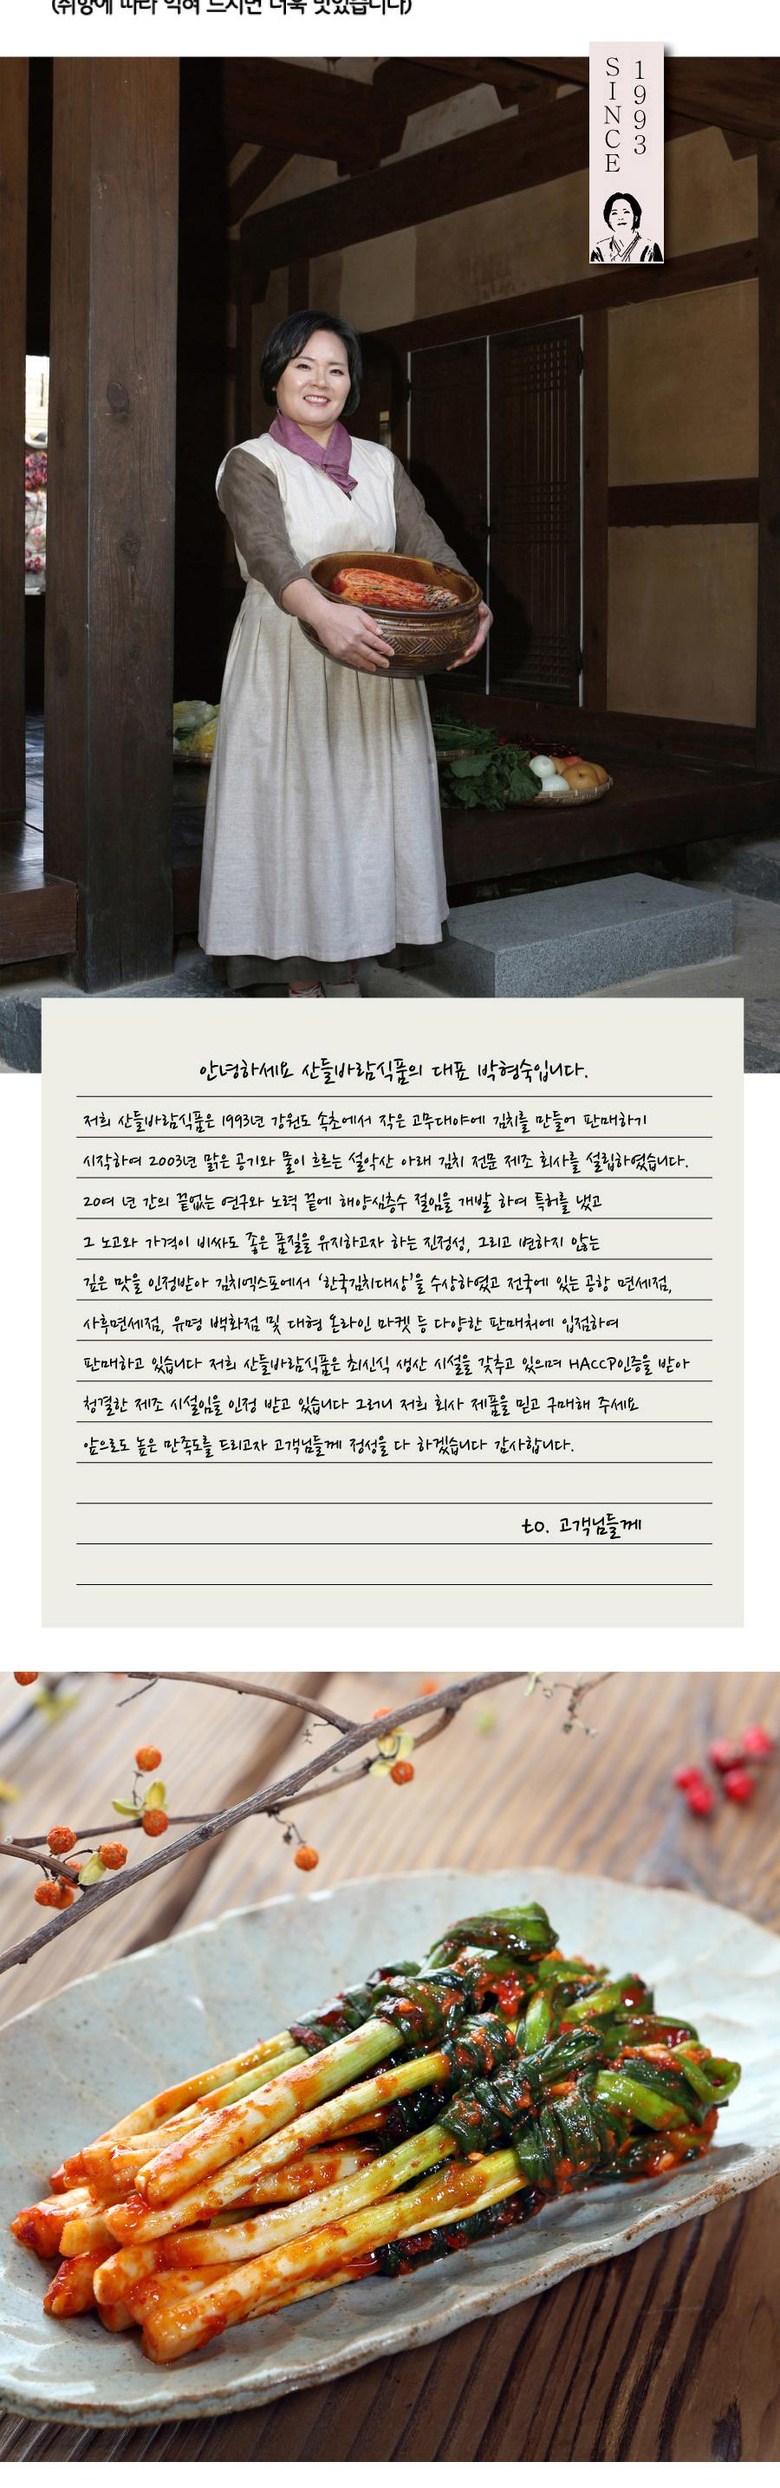 (취향에 따라 익혀 드시면 더욱 맛있습니다)
SINCE
1993
안녕하세요 산들바람식품의 대표 박형숙입니다.
저희 산들바람식품은 1993년 강원도 속초에서 작은 고무대야에 김치를 만들어 판매하기
시작하여 2003년 맑은 공기와 물이 흐르는 설악산 아래 김치 전문 제조 회사를 설립하였습니다.
20여 년 간의 끝없는 연구와 노력 끝에 해양심층수 절임을 개발 하여 특허를 냈고
그 노고와 가격이 비싸도 좋은 품질을 유지하고자 하는 진정성, 그리고 변하지 않는
깊은 맛을 인정받아 김치엑스포에서 '한국김치대상'을 수상하였고 전국에 있는 공항 면세점,
사후면세점, 유명 백화점 및 대형 온라인 마켓 등 다양한 판매처에 입점하여
판매하고 있습니다 저희 산들바람식품은 최신식 생산 시설을 갖추고 있으며 HACCP인증을 받아
청결한 제조 시설임을 인정 받고 있습니다 그러니 저희 회사 제품을 믿고 구매해 주세요
앞으로도 높은 만족도를 드리고자 고객님들께 정성을 다 하겠습니다 감사합니다.
to. 고객님들께